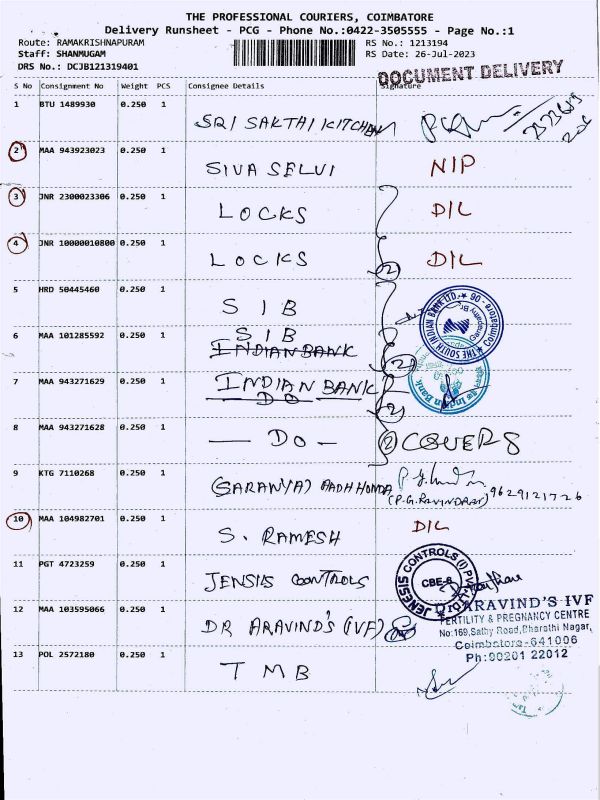 THE PROFESSIONAL COURIERS, COIMBATORE
Delivery Runsheet - PCG - Phone No.:0422-3505555 - Page No.:1
Route: RAMAKRISHNAPURAM RS No.: 1213194
Staff: SHANMUGAM RS Date: 26-Jul-2023
DRS No.: DCJB121319401
DOCUMENT DELIVERY
S No Consignment No Weight PCS Consignee Details Signature
1 BTU 1489930 0.250 1
SRI SAKTHI KITCHEN
2 MAA 943923023 0.250 1
SIVA SELVI NIP
3 JNR 2300023306 0.250 1
LOCKS D/L
4 JNR 10000010800 0.250 1
LOCKS (2) D/L
5 HRD 50445460 0.250 1
SIB
THE SOUTH INDIAN BANK LTD. Coimbatore - 06
6 MAA 101285592 0.250 1
SIB
INDIAN BANK (2)
7 MAA 943271629 0.250 1
INDIAN BANK
DO (2)
Indian Bank
8 MAA 943271628 0.250 1
— DO — (2) COVERS
9 KTG 7110268 0.250 1
(SARANYA) AADHI HONDA
(P.G. RAVINDRAN) 9629121726
10 MAA 104982701 0.250 1
S. RAMESH D/L
11 PGT 4723259 0.250 1
JENSIS CONTROLS
JENESIS CONTROLS (I) PVT. LTD. CBE-6
12 MAA 103595066 0.250 1
DR ARAVIND'S (IVF)
Dr ARAVIND'S IVF
FERTILITY & PREGNANCY CENTRE
No:169,Sathy Road,Bharathi Nagar,
Coimbatore-641006
Ph:90201 22012
13 POL 2572180 0.250 1
TMB